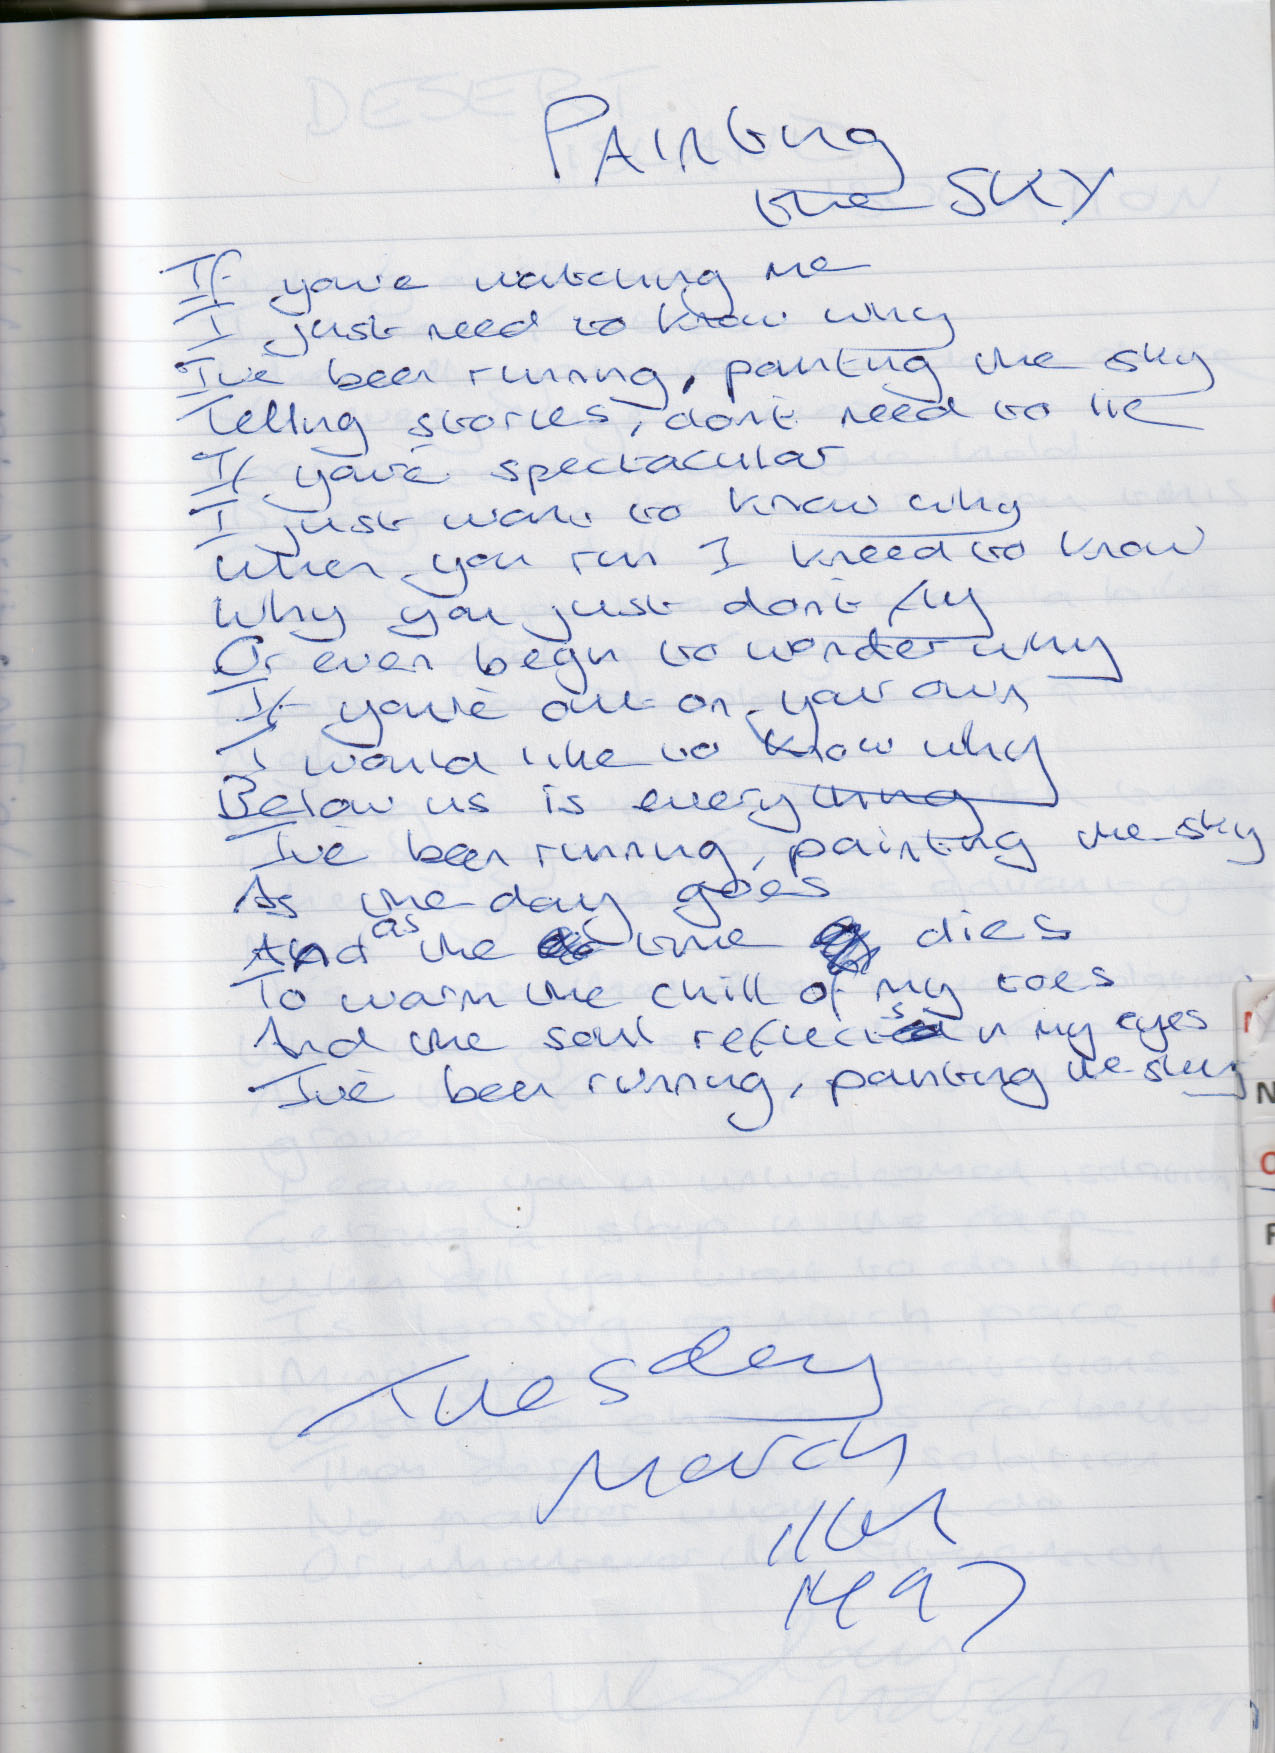 PAINting
the SKY
If you're watching me
I just need to know why
I've been running, painting the sky
Telling stories, don't need to lie
If you're spectacular
I just want to know why
When you run I kneed to know
Why you just don't fly
Or even begin to wonder why
If you're out on your own
I would like to know why
Below us is everything
I've been running, painting the sky
As the day goes
And as the time dies
To warm the chill of my toes
And the soul reflects in my eyes
I've been running, painting the sky
Tuesday
March
11th
1997